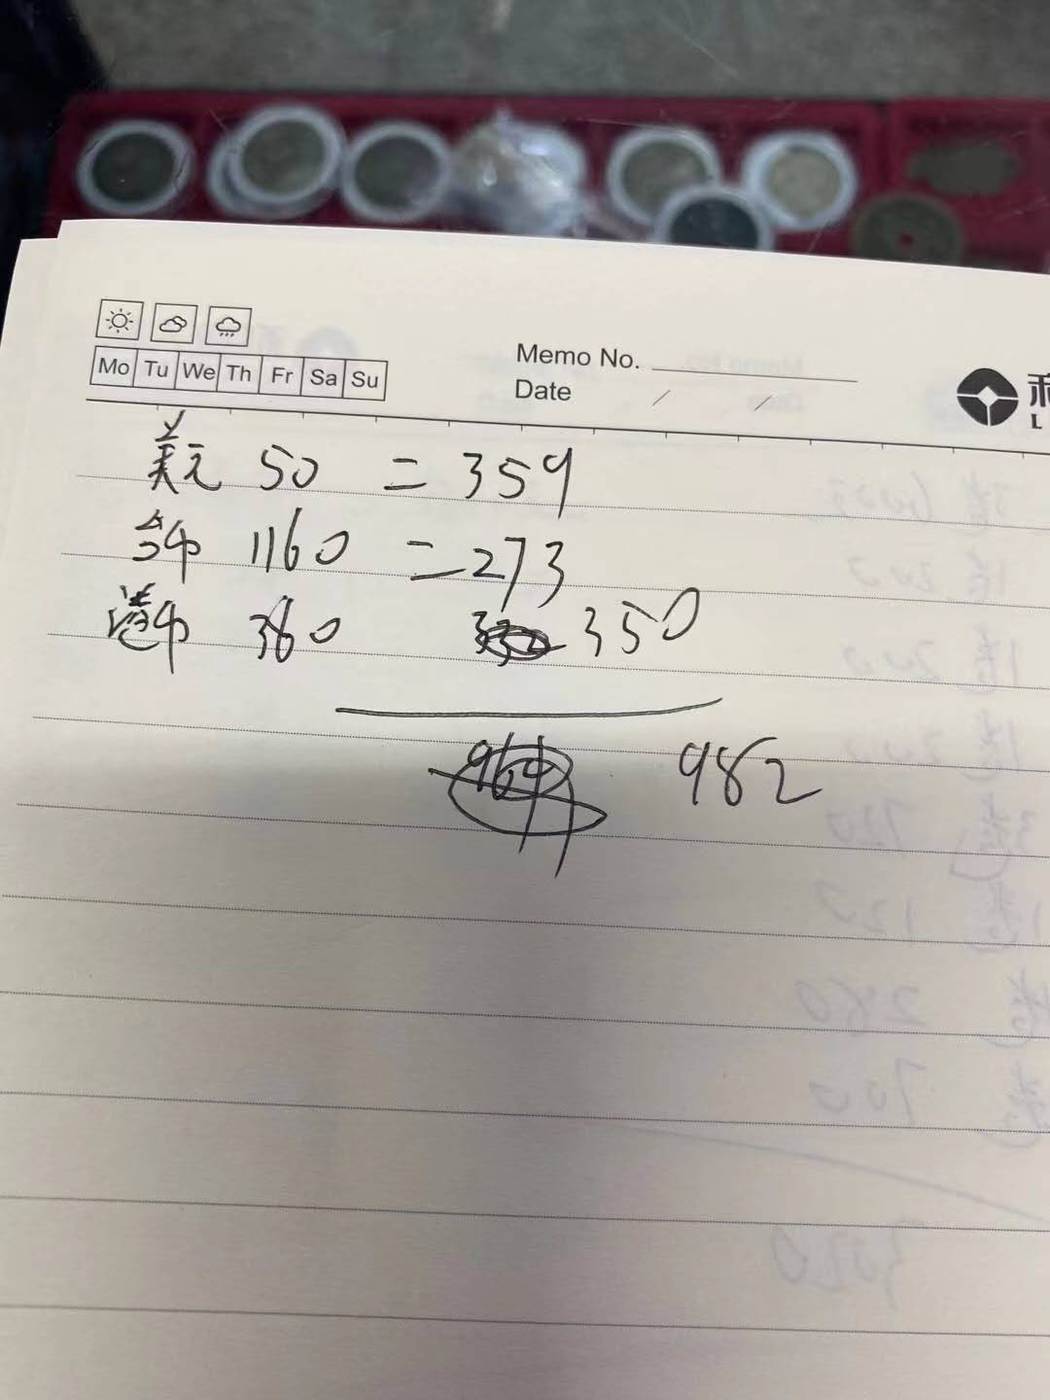 Mo Tu We Th Fr Sa Su
Memo No.
Date / /
美元 50 = 359
台币 1160 = 273
港币 380 350
982